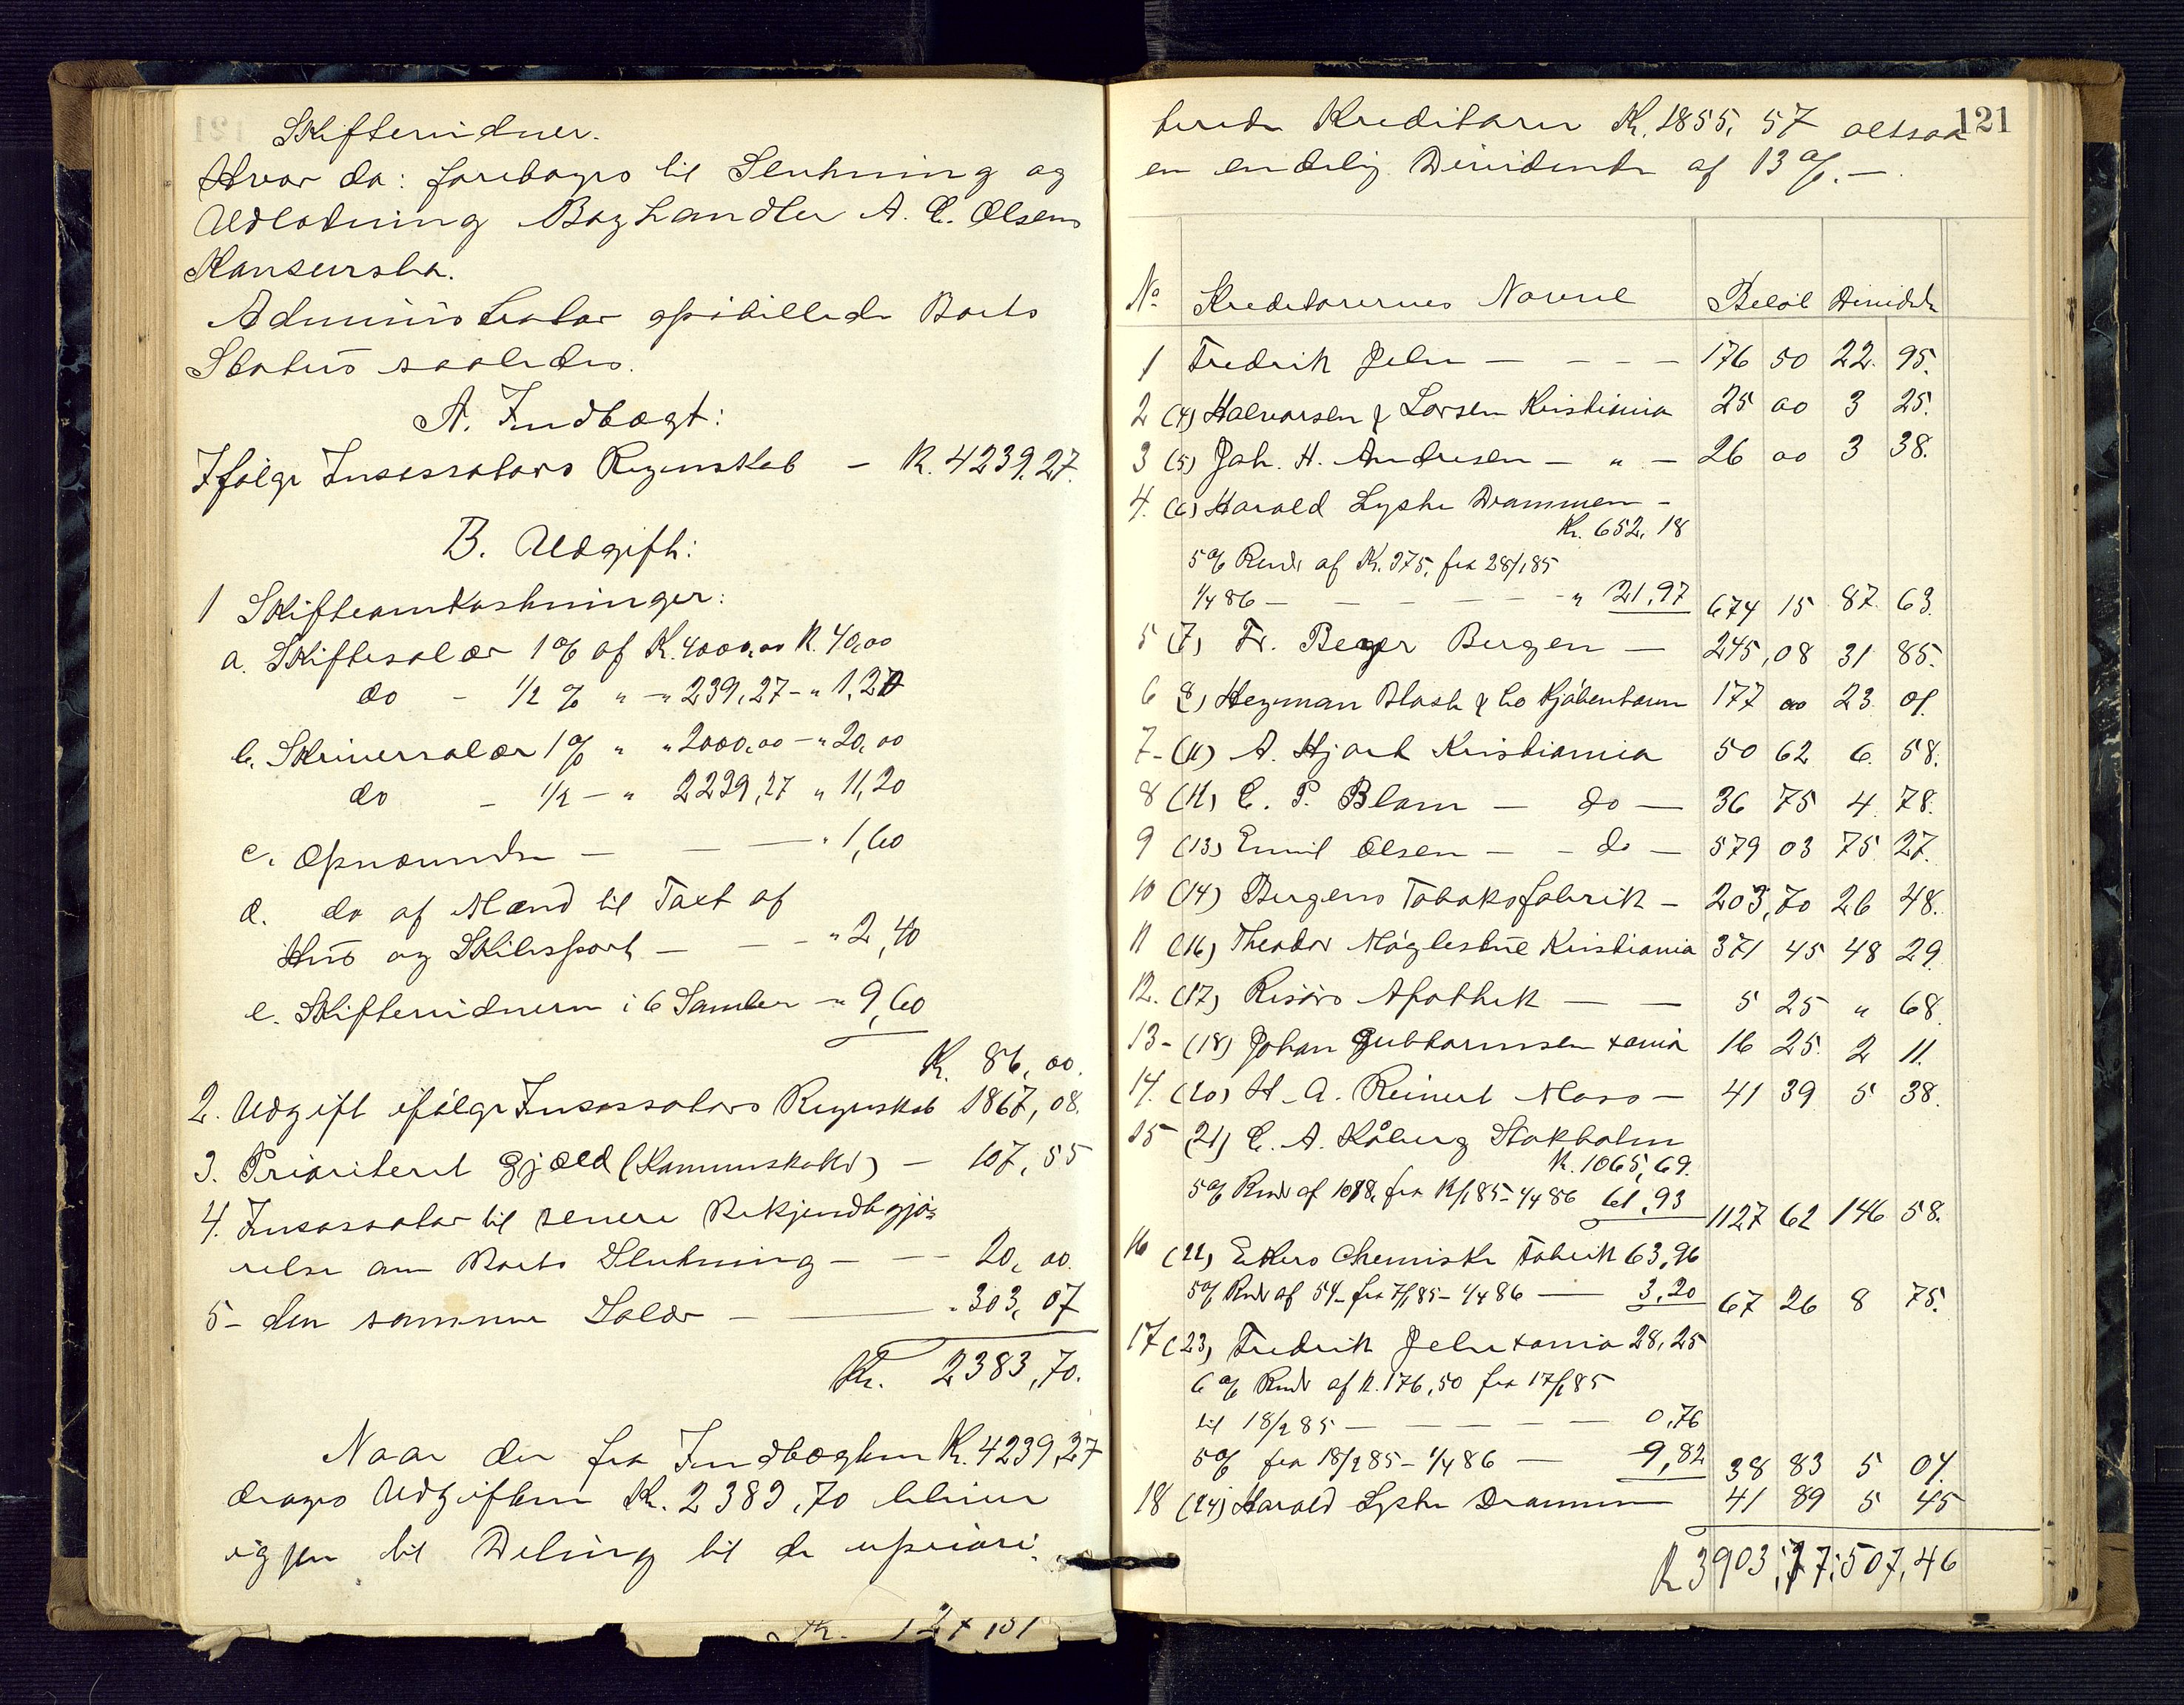 Skiftevidner.
Hvor da: foretoges til Slutning og
Udlodning Boghandler A. C. Olsens
Konkursbo.
Administrator opstillede Boets
Status saaledes.
A. Indtægt:
Ifølge Incassators Regnskab - K. 4239,27.
B. Udgift:
1 Skifteomkostninger:
a. Skiftesalær 1% af K. 4000,00 K. 40,00
do - 1/2 % " - " 239,27 - " 1,20
b. Skriversalær 1% " " 2000,00 - " 20,00
do - 1/2 - " 2239,27 " 11,20
c. Opnævnelse - - - " 1,60
d. do af Mænd til Taxt af
Hus og Skibspart - - - " 2,40
e. Skiftevidnern i 6 Samlin - " 9,60
K. 86,00.
2. Udgift ifølge Incassators Regnskab 1867,08.
3. Prioriteret Gjæld (Kommuneskat) - 107,55
4. Incassator til senere Bekjendtgjø-
relse om Boets Slutning - - - 20,00.
5 - den samme Salær - - " 303,07
Kr. 2383,70.
Naar der fra Indtægten K. 4239,27
drages Udgiften K. 2383,70 bliver
igjen til Deling til de upriori-
Kr. 127,51
121
terede Kreditorer K. 1855,57 altsaa
en endelig Dividende af 13 %. -
No Kreditorernes Navne Beløb Divide
1 Fredrik Jelu - - - - 176 50 22. 95.
2 (4) Halvorsen & Larsen Kristiania 25 00 3 25.
3 (5) Joh. H. Andresen - " - 26 00 3 38.
4. (6) Harald Lyche Drammen -
Kr. 652,18
5% Rente af K. 375, fra 28/1 85
1/4 86 - - - - - " 21,97 674 15 87. 63.
5 (7) Fr. Beyer Bergen - 245,08 31 85.
6 (8) Heyman Bloch & Co Kjøbenhavn 177 00 23. 01.
7 - (11) A. Hjort Kristiania 50 62 6. 58.
8 (12) C. P. Blom - do - 36 75 4. 78.
9 (13) Emil Olsen - - do - 579 03 75 27.
10 (14) Bergens Tobaksfabrik - 203,70 26 48.
11 (16) Theodor Møglestue Kristiania 371 45 48 29.
12. (17) Risørs Apothek - - 5 25 " 68.
13 - (18) Johan Guttormsen xania 16 25. 2 11.
14. (20) H. A. Reinert Moss - 41 39 5 38.
15 (21) C. A. Kåberg Stokholm
K. 1065,69.
5% Rente af 1018, fra 12/1 85 - 1/4 86 61,93 1127 62 146 58.
16 (22) Ekers Chemiske Fabrik 63,96
5% Rente af 54 - fra 7/1 85 - 1/4 86 - 3,20 67 26 8 75.
17 (23) Fredrik Jelu xania 28,25
6% Rente af K. 176,50 fra 17/1 85
til 18/2 85 - - - - - 0,76
5% fra 18/2 85 - 1/4 86 - 9,82 38 83 5 04.
18 (24) Harald Lyche Drammen 41 89 5 45
K 3903,77; 507,46